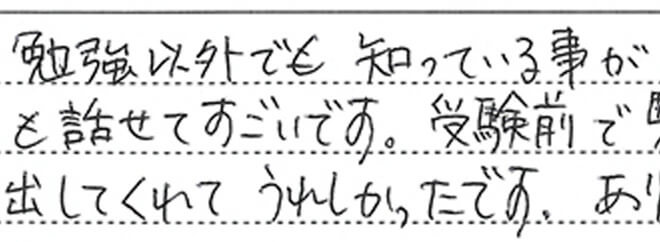 勉強以外でも知っている事が
も話せてすごいです。受験前で
出してくれてうれしかったです。あり